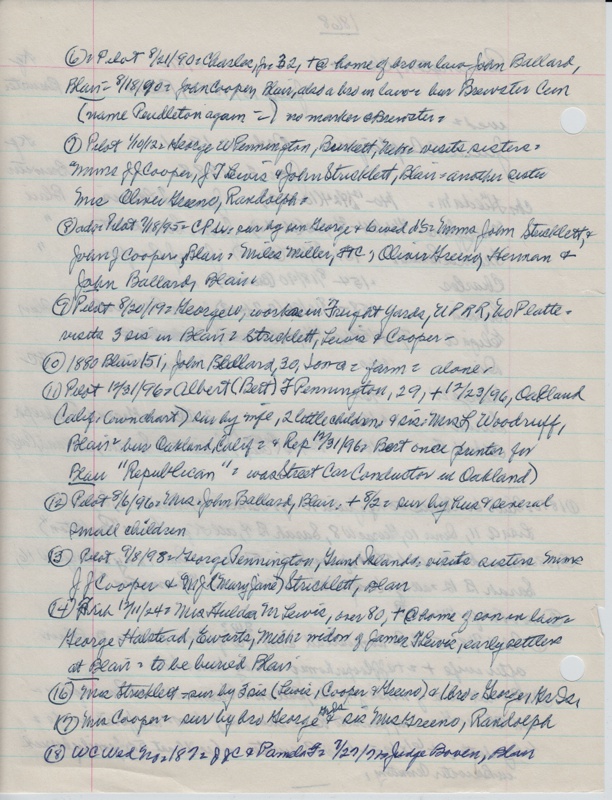 (6) Pilot 8/21/90 = Charles, Jr 32, + @ home of bro in law John Ballard,
Blair = 8/18/90 = John Cooper, Blair, also a bro in law = bur Brewster Cem
(name Pendleton again =) no marker @ Brewster =
(7) Pilot 1/10/12 = George W Pennington, Burkett, Nebr = visits sisters =
Mmms J J Cooper, J T Lewis & John Stricklett, Blair = another sister
Mrs Oliver Greeno, Randolph =
(8) Pilot 7/18/95 = C P sur by son George & 6 wed ds = Mmms John Stricklett, &
John J Cooper, Blair = Miles Miller, Oliver Greeno, Herman &
John Ballard, Blair =
(9) Pilot 8/20/19 = George W, works in Freight Yards, U P R R, No Platte =
visits 3 sis in Blair = Stricklett, Lewis & Cooper =
(10) 1880 Blair 151, John Ballard, 30, Iowa = farm = alone =
(11) Pilot 12/31/96 = Albert (Bert) F Pennington, 29, + 12/23/96, Oakland
Calif. (own chart) sur by wife, 2 little children & sis = Mrs L Woodruff,
Blair = bur Oakland, Calif = & Rep 12/31/96 = Bert once printer for
Blair "Republican" = was Street Car Conductor in Oakland)
(12) Pilot 8/6/96 = Mrs John Ballard, Blair, + 8/2 = sur by hus & several
small children
(13) Pilot 9/8/98 = George Pennington, Grand Island, visits sisters Mmms
J J Cooper & W J (Mary Jane) Stricklett, Blair
(14) 12/11/24 = Mrs Hulda M Lewis, over 80, + @ home of son in law =
George Halstead, Ewarts, Mich = widow of James T Lewis, early settlers
at Blair = to be buried Blair
(16) Mrs Stricklett = sur by 3 sis (Lewis, Cooper & Greeno) & 1 bro = George, Gr Isl
(17) Mrs Cooper = sur by bro George Gr Isl & sis Mrs Greeno, Randolph
(18) W C Wed No 187 = J J C & 7/27/7 = Judge Bowen, Blair